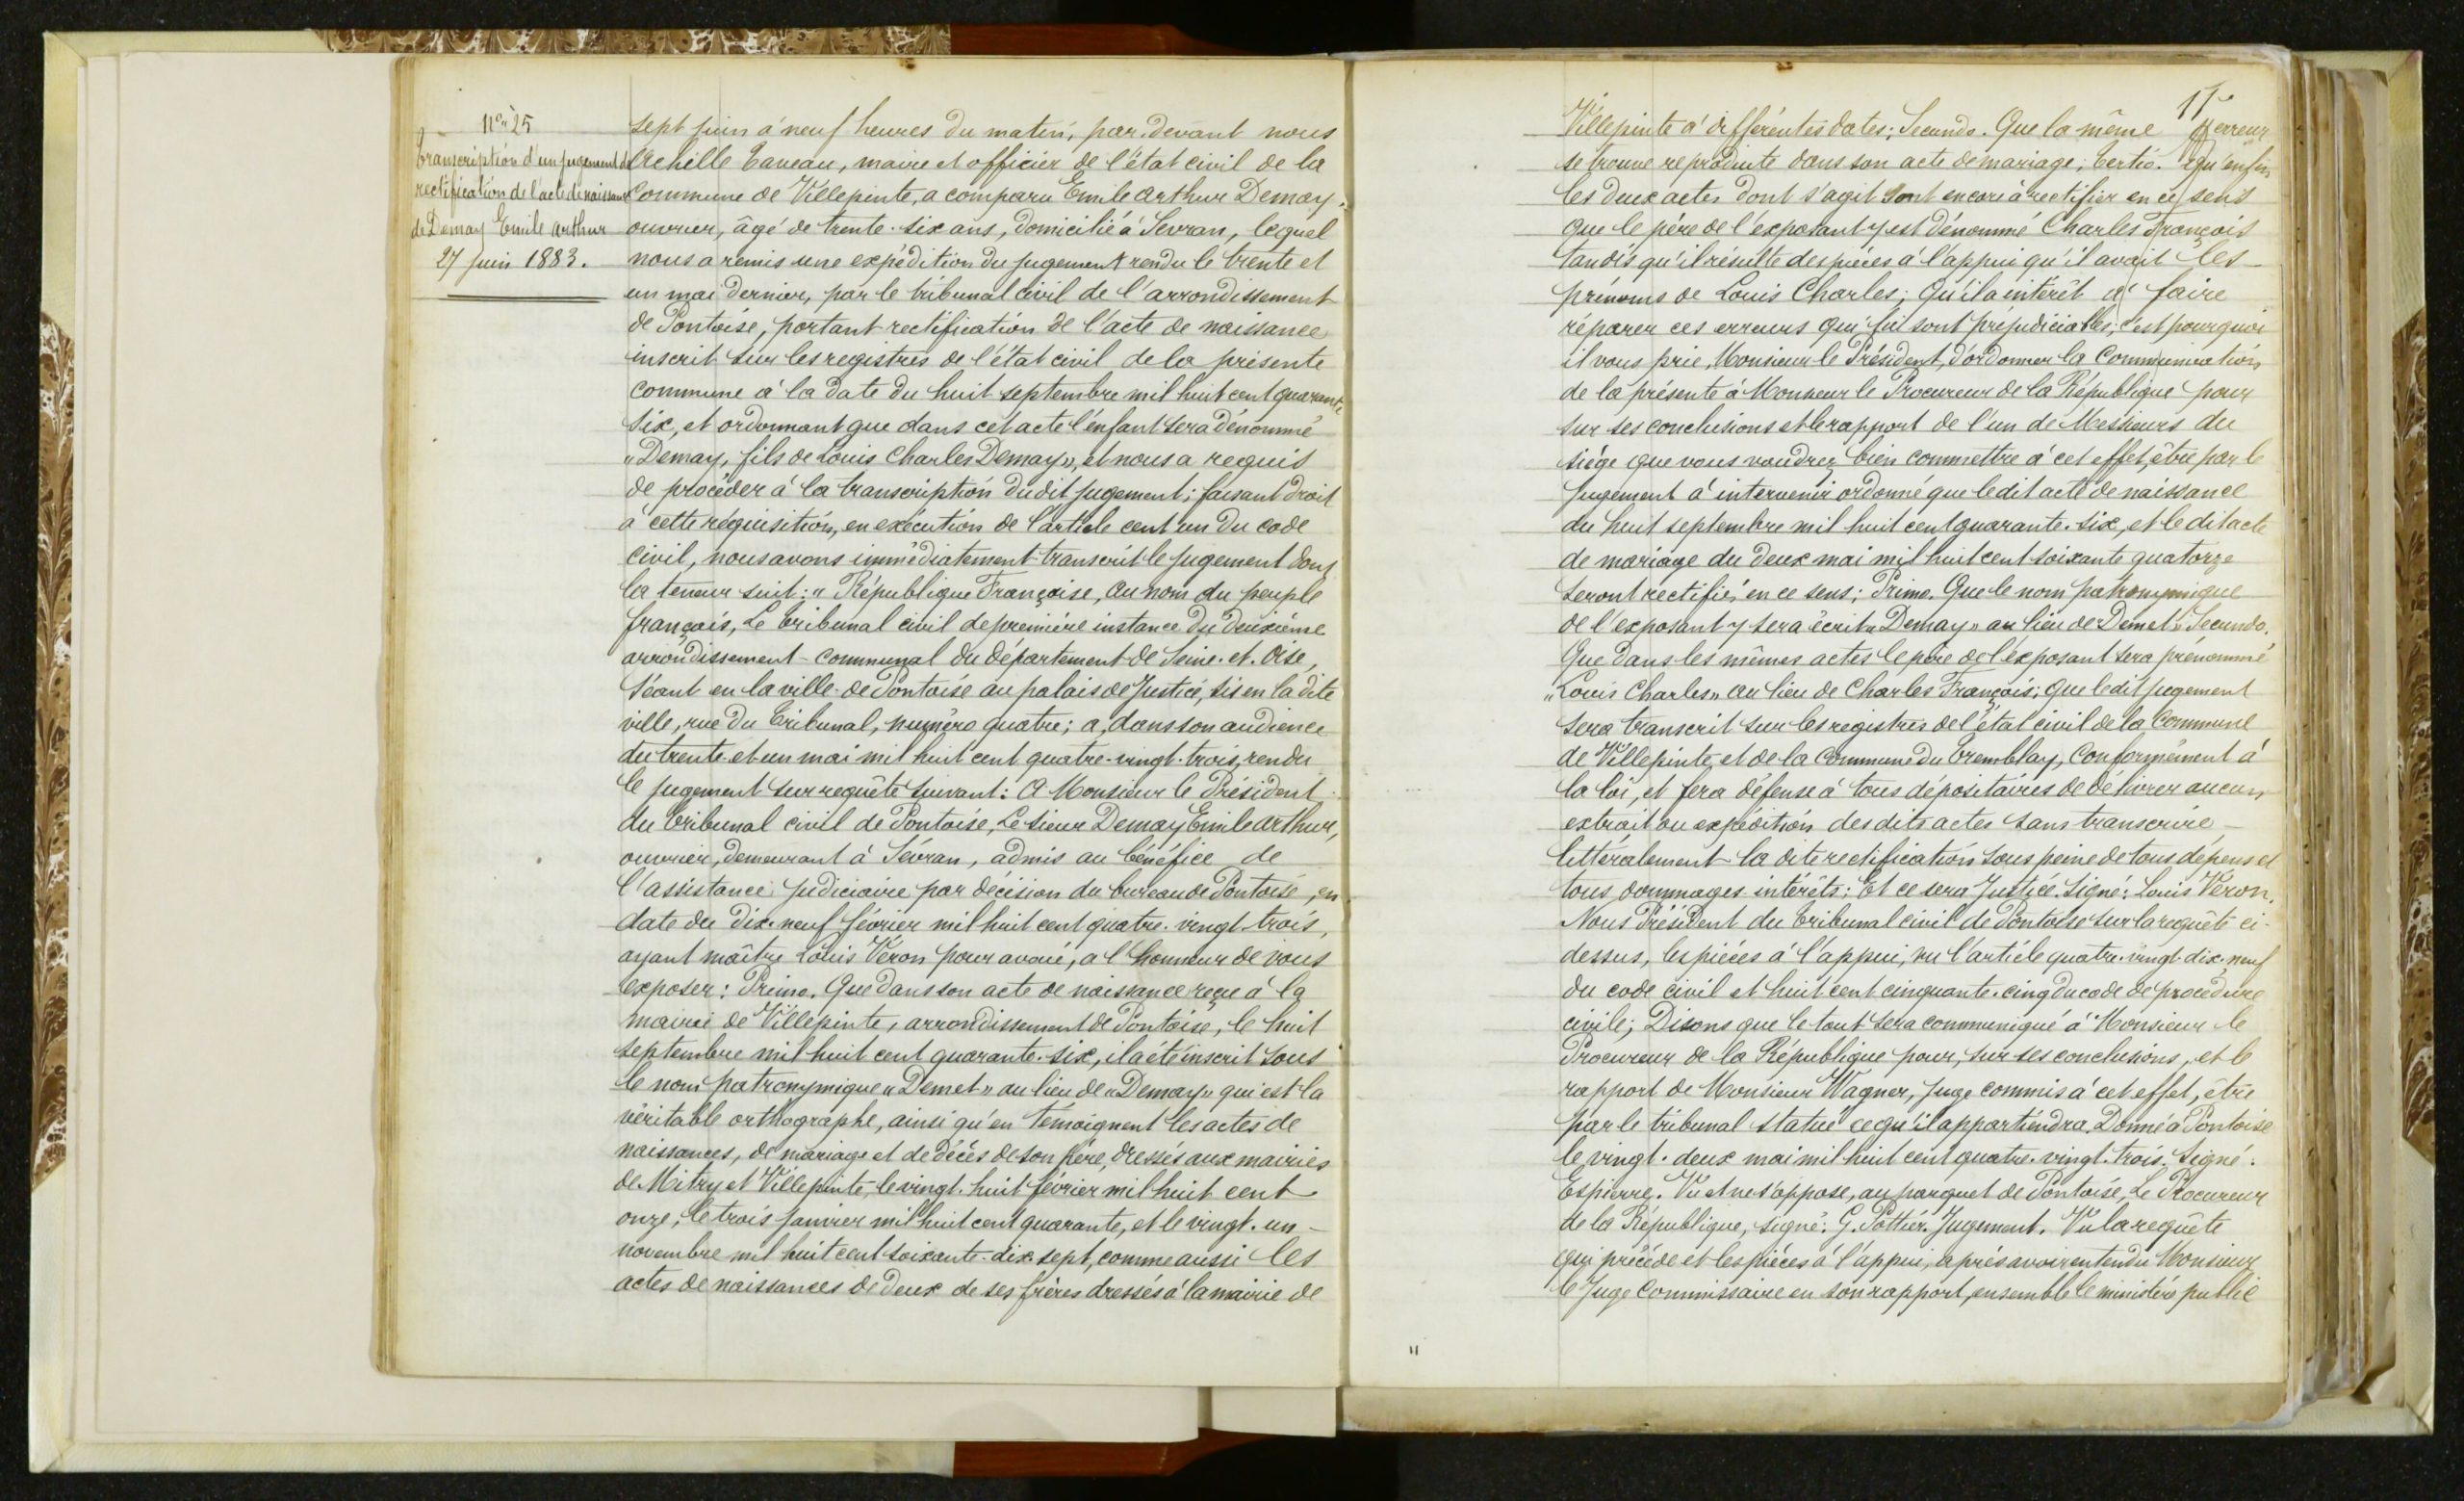 N° 25
Transcription d'un jugement de
rectification de l'acte de naissance
de Demay Emile Arthur
27 juin 1883.
sept juin à neuf heures du matin, par devant nous
Achille Caveau, maire et officier de l'état civil de la
Commune de Villepinte, a comparu Emile Arthur Demay,
ouvrier, âgé de trente-six ans, domicilié à Sevran, lequel
nous a remis une expédition du jugement rendu le trente et
un mai dernier, par le tribunal civil de l'arrondissement
de Pontoise, portant rectification de l'acte de naissance
inscrit sur les registres de l'état civil de la présente
commune à la date du huit septembre mil huit cent quarante
six, et ordonnant que dans cet acte l'enfant sera dénommé
"Demay, fils de Louis Charles Demay", et nous a requis
de procéder à la transcription dudit jugement; faisant droit
à cette réquisition, en exécution de l'article cent un du code
civil, nous avons immédiatement transcrit le jugement dont
la teneur suit: " République Française, au nom du peuple
français, Le tribunal civil de première instance du deuxième
arrondissement-communal du département de Seine-et-Oise,
séant en la ville de Pontoise au palais de Justice, sis en la dite
ville, rue du Tribunal, numéro quatre; a, dans son audience
du trente-et-un mai mil huit cent quatre-vingt-trois, rendu
le jugement sur requête suivant: A Monsieur le Président
du tribunal civil de Pontoise, Le sieur Demay Emile Arthur,
ouvrier, demeurant à Sévran, admis au bénéfice de
l'assistance judiciaire par décision du bureau de Pontoise, en
date du dix-neuf février mil huit cent quatre-vingt-trois,
ayant maître Louis Véron pour avoué, a l'honneur de vous
exposer: Primo. Que dans son acte de naissance reçu à la
mairie de Villepinte, arrondissement de Pontoise, le huit
septembre mil huit cent quarante-six, il a été inscrit sous
le nom patronymique "Demet" au lieu de "Demay" qui est la
véritable orthographe, ainsi qu'en témoignent les actes de
naissances, de mariage et de décès de son père, dressés aux mairies
de Mitry et Villepinte, le vingt-huit février mil huit cent
onze, le trois janvier mil huit cent quarante, et le vingt-un
novembre mil huit cent soixante-dix-sept, comme aussi les
actes de naissances de deux de ses frères dressés à la mairie de
Villepinte à différentes dates; Secundo. Que la même erreur
se trouve reproduite dans son acte de mariage; Tertio. Qu'enfin
les deux actes dont s'agit sont encore à rectifier en ce sens
que le père de l'exposant y est dénommé Charles François
tandis qu'il résulte des pièces à l'appui qu'il avait les
prénoms de Louis Charles; Qu'il a intérêt à faire
réparer ces erreurs qui lui sont préjudiciables; c'est pourquoi
il vous prie, Monsieur le Président, d'ordonner la Communication
de la présente à Monsieur le Procureur de la République pour
sur ses conclusions et le rapport de l'un de Messieurs du
siége que vous voudrez bien commettre à cet effet, être par le
jugement à intervenir ordonné que ledit acte de naissance
du huit septembre mil huit cent quarante-six, et le dit acte
de mariage du deux mai mil huit cent soixante quatorze
seront rectifiés en ce sens; Primo. Que le nom patronymique
de l'exposant y sera écrit "Demay" au lieu de Demet". Secundo.
Que dans les mêmes actes le père de l'exposant sera prénommé
"Louis Charles" au lieu de Charles François; que ledit jugement
sera transcrit sur les registres de l'état civil de la Commune
de Villepinte et de la Commune du Tremblay, Conformément à
la loi, et fera défense à tous dépositaires de délivrer aucun
extrait ou expédition des dits actes sans transcrire
littéralement la dite rectification sous peine de tous dépens et
tous dommages intérêts: Et ce sera Justice. Signé: Louis Véron.
Nous Président du tribunal civil de Pontoise sur la requête ci-
dessus, les pièces à l'appui, vu l'article quatre-vingt-dix-neuf
du code civil et huit cent cinquante-cinq du code de procédure
civile; Disons que le tout sera communiqué à Monsieur le
Procureur de la République pour, sur ses conclusions, et le
rapport de Monsieur Wagner, juge commis à cet effet, être
par le tribunal statué ce qu'il appartiendra. Donné à Pontoise
le vingt-deux mai mil huit cent quatre-vingt-trois. Signé:
Espierre. Vu et ne s'oppose, au parquet de Pontoise, Le Procureur
de la République, signé: G. Pottier. Jugement. Vu la requête
qui précède et les pièces à l'appui, après avoir entendu Monsieur
le Juge Commissaire en son rapport, ensemble le ministère public